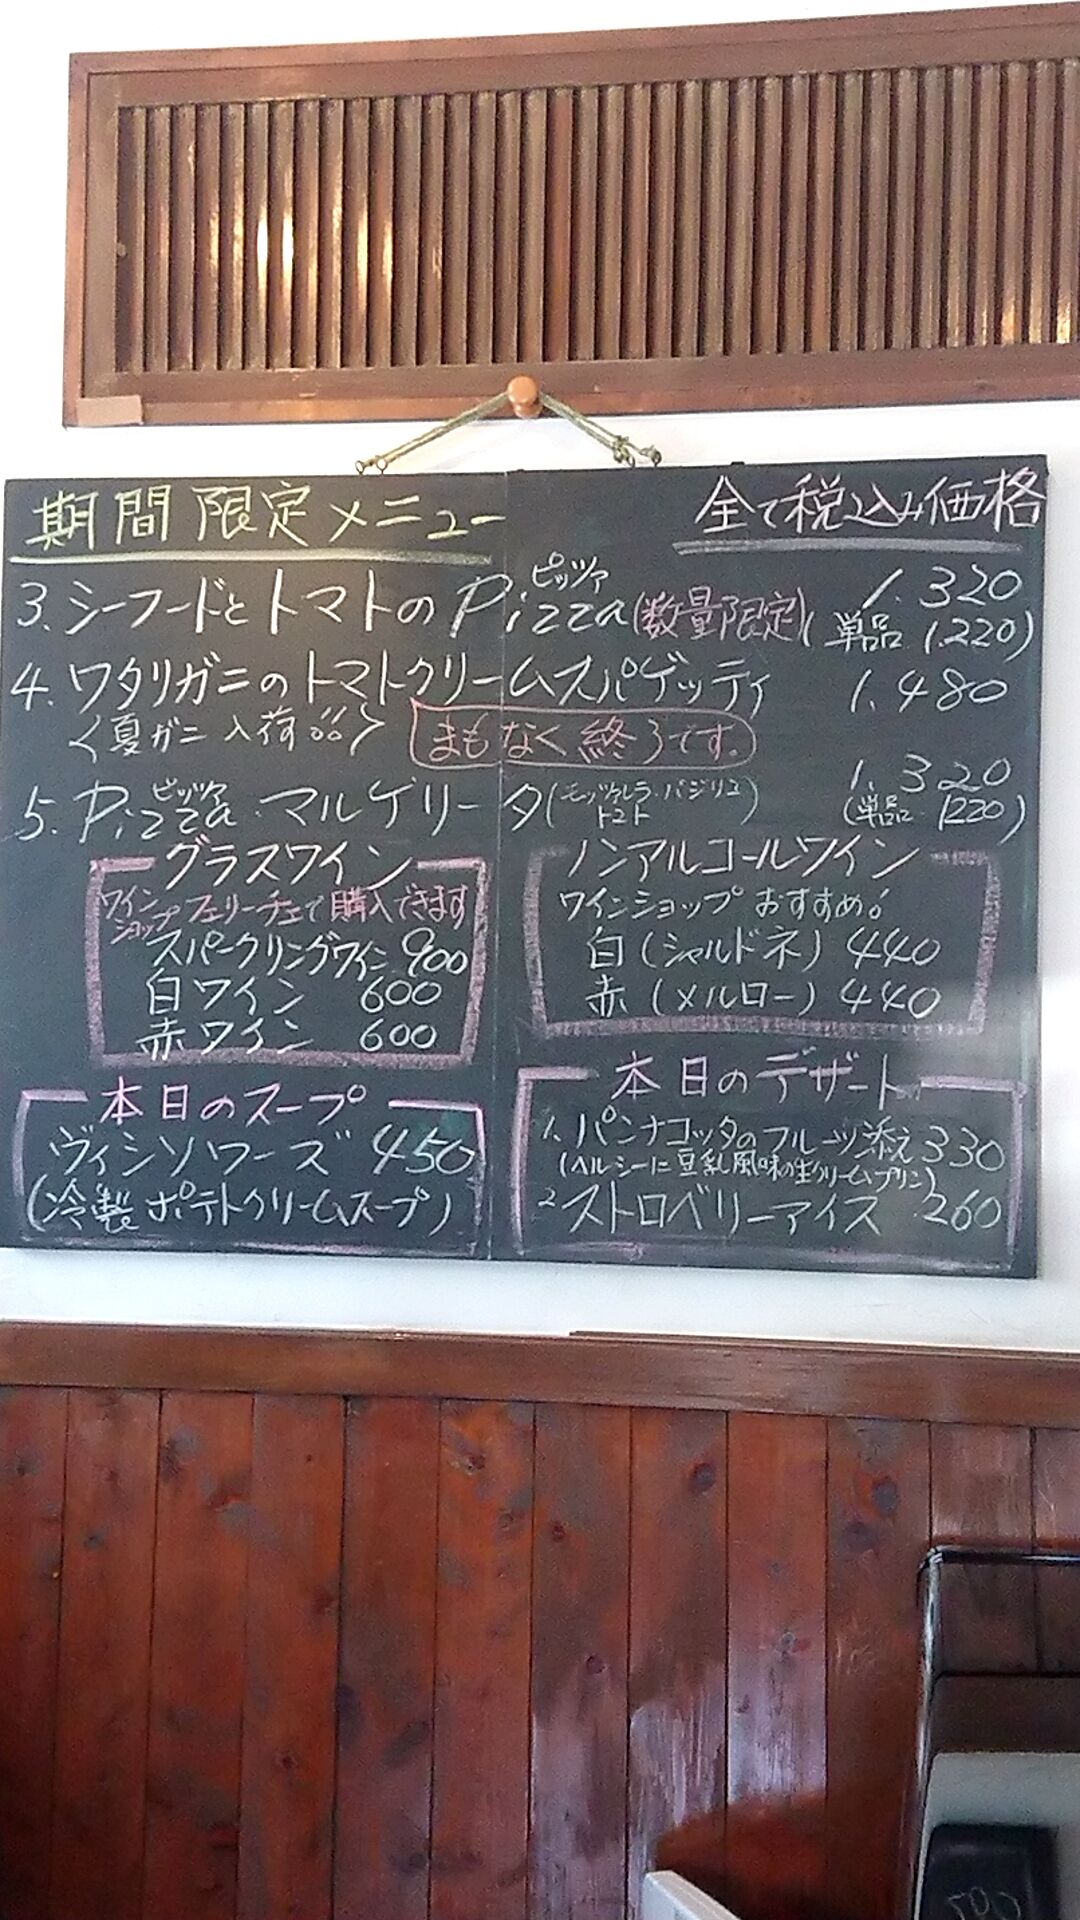 期間限定メニュー
全て税込み価格
3. シーフードとトマトの Pizza ピッツァ (数量限定) 1.320
(単品 1.220)
4. ワタリガニのトマトクリームスパゲッティ 1.480
<夏ガニ入荷!!> まもなく終了です。
5. Pizza ピッツァ・マルゲリータ (モッツァレラ・バジリコ トマト) 1.320
(単品 1220)
グラスワイン
ワインショップ フェリーチェで購入できます
スパークリングワイン 900
白ワイン 600
赤ワイン 600
ノンアルコールワイン
ワインショップ おすすめ!
白(シャルドネ) 440
赤(メルロー) 440
本日のスープ
ヴィシソワーズ 450
(冷製ポテトクリームスープ)
本日のデザート
1. パンナコッタのフルーツ添え 330
(ヘルシーに豆乳風味の生クリームプリン)
2 ストロベリーアイス 260